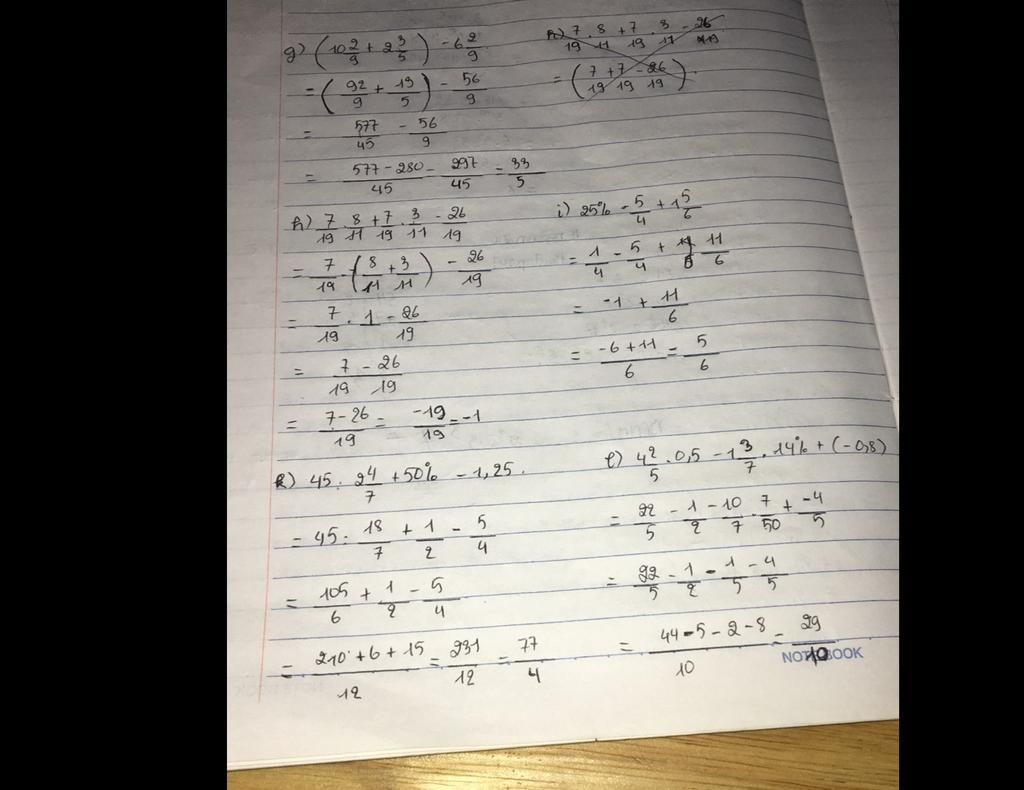 g) (10 2/9 + 2 3/5) - 6 2/9
= (92/9 + 13/5) - 56/9
= 577/45 - 56/9
= 577-280/45 = 297/45 = 33/5
h) 7/19 . 8/11 + 7/19 . 3/11 - 26/19
= (7/19 + 7/19 - 26/19) .
h) 7/19 . 8/11 + 7/19 . 3/11 - 26/19
= 7/19 . (8/11 + 3/11) - 26/19
= 7/19 . 1 - 26/19
= 7/19 - 26/19
= 7-26/19 = -19/19 = -1
i) 25% - 5/4 + 1 5/6
= 1/4 - 5/4 + 11/6
= -1 + 11/6
= -6+11/6 = 5/6
k) 45 : 2 4/7 + 50% - 1,25 .
= 45 : 18/7 + 1/2 - 5/4
= 105/6 + 1/2 - 5/4
= 210 + 6 + 15/12 = 231/12 = 77/4
l) 4 2/5 . 0,5 - 1 3/7 . 14% + (-0,8)
= 22/5 - 1/2 - 10/7 . 7/50 + -4/5
= 22/5 - 1/2 - 1/5 - 4/5
= 44-5-2-8/10 = 29/10
NOTEBOOK